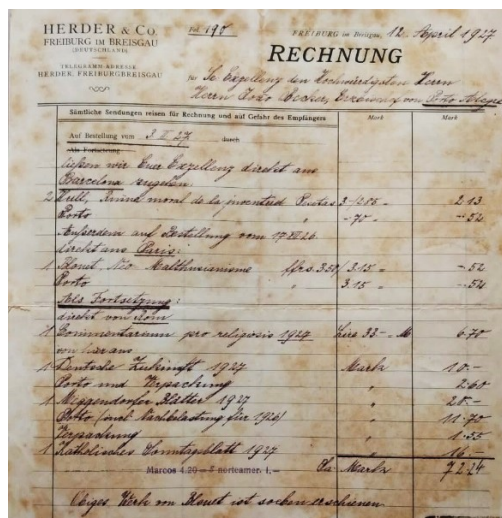 HERDER & Co.
FREIBURG IM BREISGAU
(DEUTSCHLAND)
TELEGRAMM-ADRESSE
HERDER, FREIBURGBREISGAU
Fol. 190
FREIBURG im Breisgau, 12. April 1927
RECHNUNG
für Se. Exzellenz den Hochwürdigsten Herrn
Herrn João Becker, Erzbischof von Porto Alegre
Sämtliche Sendungen reisen für Rechnung und auf Gefahr des Empfängers Mark Mark
Auf Bestellung vom 3.II.27. durch
Als Fortsetzung
ließen wir Euer Exzellenz direkt aus
Barcelona zugehen:
2 de la juventud Pesetas 2.13
Porto " -.70 - -.52
Außerdem auf Bestellung vom
direkt aus Paris:
1 Néo Malthusianisme ffrs. 3.50 / 3.15 - -.52
Porto 3.15 - -.52
Als Fortsetzung:
direkt von Rom
1 Commentarium pro religiosis 1927 Lire 33.- = M 6.70
von hier aus
1 Deutsche Zukunft 1927 Mark 10.-
Porto und Verpackung " 2.60
1 Meggendorfer Blätter 1927 "
Porto (incl. Nachbelastung für 1926) " 11.70
Verpackung " 1.55
1 Katholisches Sonntagsblatt 1927 " 16.-
Marcos 4.20 = $ norteamer. 1,— Mark 72.24
Obiges Werk von ist soeben erschienen